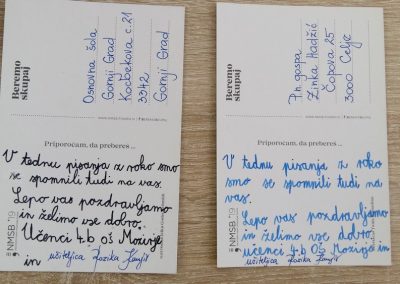 Beremo
skupaj
Osnovna šola
Gornji Grad
Kocbekova c. 21
3342
Gornji Grad
Priporočam, da preberes ...
V tednu pisanja z roko smo
se spomnili tudi na vas.
Lepo vas pozdravljamo
in želimo vse dobro.
Učenci 4.b OŠ Mozirje
in učiteljica
NMSB '19
Beremo
skupaj
P.n. gospa
Zinka Hadžić
Čopova 25
3000 Celje
Priporočam, da preberes ...
V tednu pisanja z roko
smo se spomnili tudi na
vas.
Lepo vas pozdravljamo
in želimo vse dobro,
učenci 4.b OŠ Mozirje in
učiteljica
NMSB '19